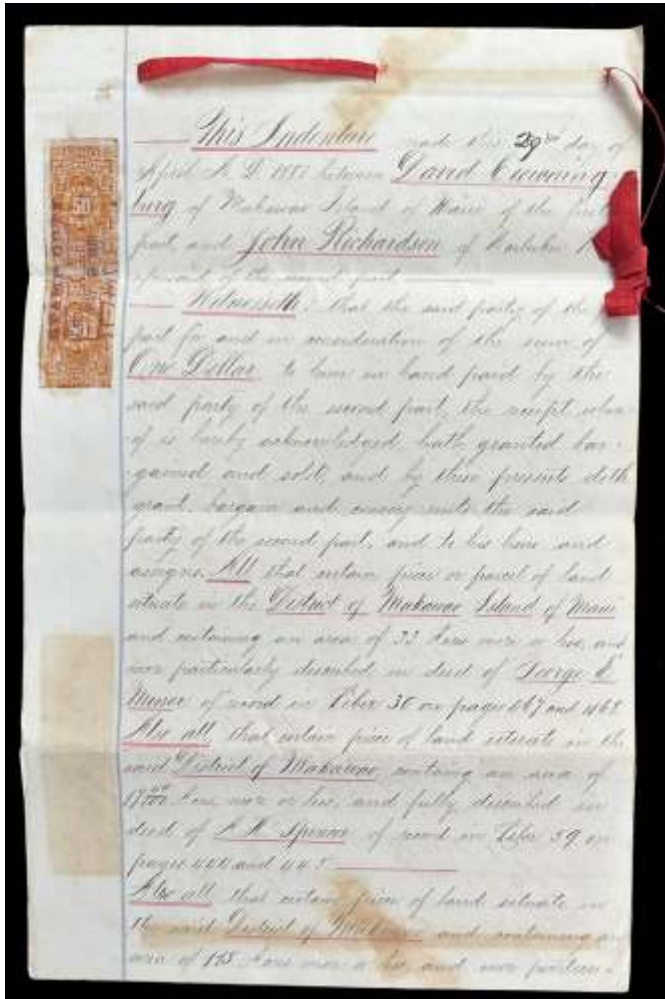 This Indenture made this 29th day of
April A. D. 188 between David Crowning
burg of Makawao Island of Maui of the first
part, and John Richardson of Wailuku
of the second part
Witnesseth: that the said party of the
part for and in consideration of the sum of
One Dollar to him in hand paid by the
said party of the second part, the receipt where
of is hereby acknowledged, hath granted bar-
gained and sold, and by these presents doth
grant, bargain and convey unto the said
party of the second part, and to his heirs and
assigns. All that certain piece or parcel of land
situate in the District of Makawao Island of Maui
and containing an area of 33 Acres more or less, and
more particularly described in deed of George E.
Miner of record in Liber 30 on pages 467 and 468
Also all that certain piece of land situate in the
said District of Makawao containing an area of
17 Acres more or less, and fully described in
deed of of record in Liber 59 on
pages 444 and 445
Also all that certain piece of land situate in
the said District of Makawao and containing an
area of Acres more or less, and more particu-
50
50